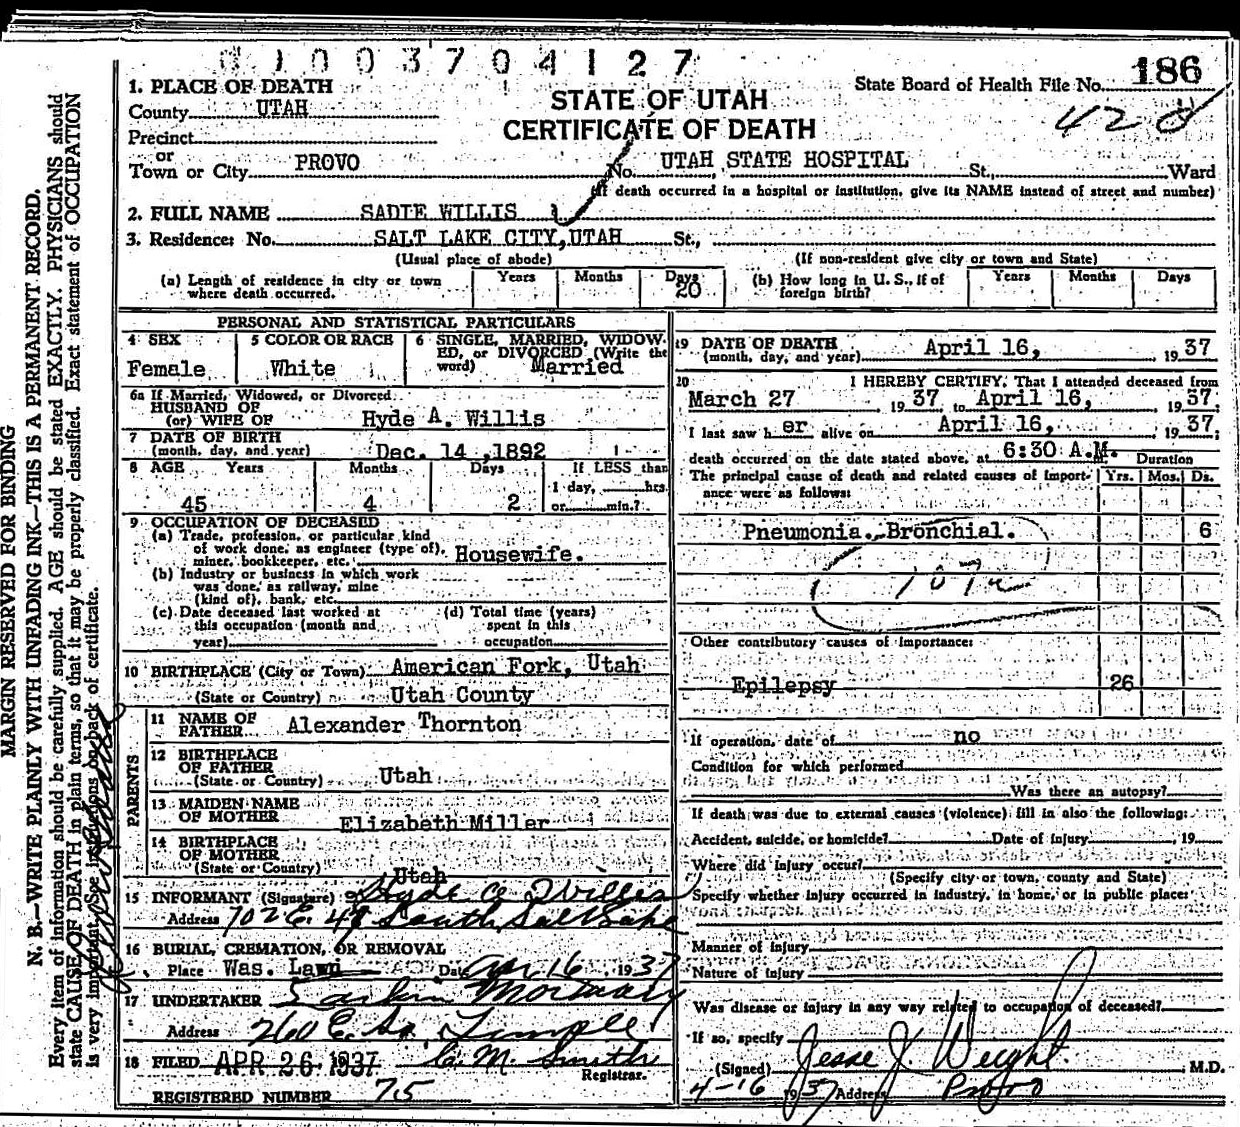 01003704127
186
State Board of Health File No.
428
1. PLACE OF DEATH
County UTAH
Precinct
or
Town or City PROVO
STATE OF UTAH
CERTIFICATE OF DEATH
No. UTAH STATE HOSPITAL St., Ward
(If death occurred in a hospital or institution, give its NAME instead of street and number)
2. FULL NAME SADIE WILLIS
3. Residence: No. SALT LAKE CITY, UTAH St.,
(Usual place of abode) (If non-resident give city or town and State)
(a) Length of residence in city or town where death occurred. Years Months Days 20
(b) How long in U. S., if of foreign birth? Years Months Days
PERSONAL AND STATISTICAL PARTICULARS
4 SEX Female
5 COLOR OR RACE White
6 SINGLE, MARRIED, WIDOW-
ED, or DIVORCED (Write the
word) Married
6a If Married, Widowed, or Divorced
HUSBAND OF
(or) WIFE OF Hyde A. Willis
7 DATE OF BIRTH
(month, day, and year) Dec. 14, 1892
8 AGE Years Months Days If LESS than
1 day, hrs.
45 4 2 or min.?
9 OCCUPATION OF DECEASED
(a) Trade, profession, or particular kind
of work done, as engineer (type of),
miner, bookkeeper, etc. Housewife.
(b) Industry or business in which work
was done, as railway, mine
(kind of), bank, etc.
(c) Date deceased last worked at
this occupation (month and
year)
(d) Total time (years)
spent in this
occupation
10 BIRTHPLACE (City or Town) American Fork, Utah
(State or Country) Utah County
PARENTS
11 NAME OF
FATHER Alexander Thornton
12 BIRTHPLACE
OF FATHER
(State or Country) Utah
13 MAIDEN NAME
OF MOTHER Elizabeth Miller
14 BIRTHPLACE
OF MOTHER
(State or Country) Utah
15 INFORMANT (Signature) Hyde A Willis
Address 702 E. 4th South, Salt Lake
16 BURIAL, CREMATION, OR REMOVAL
Place Was. Lawn Date Apr 16, 1937
17 UNDERTAKER Larkin Mortuary
Address 260 E. So. Temple
18 FILED APR 26 1937 C. M. Smith
Registrar.
REGISTERED NUMBER 75
19 DATE OF DEATH
(month, day, and year) April 16, 1937
20 I HEREBY CERTIFY, That I attended deceased from
March 27 1937, to April 16, 1937.
I last saw her alive on April 16, 1937,
death occurred on the date stated above, at 6:30 A.M. Duration
The principal cause of death and related causes of import-
ance were as follows: Yrs. Mos. Ds.
Pneumonia. Bronchial. 6
107a
Other contributory causes of importance:
Epilepsy 26
If operation, date of no
Condition for which performed
Was there an autopsy?
If death was due to external causes (violence) fill in also the following:
Accident, suicide, or homicide? Date of injury, 19
Where did injury occur?
(Specify city or town, county and State)
Specify whether injury occurred in industry, in home, or in public place:
Manner of injury
Nature of injury
Was disease or injury in any way related to occupation of deceased?
If so, specify
(Signed) Jesse J. Weight. M.D.
4-16 1937 Address Provo
MARGIN RESERVED FOR BINDING
N. B.—WRITE PLAINLY WITH UNFADING INK—THIS IS A PERMANENT RECORD.
Every item of information should be carefully supplied. AGE should be stated EXACTLY. PHYSICIANS should
state CAUSE OF DEATH in plain terms, so that it may be properly classified. Exact statement of OCCUPATION
is very important. See instructions on back of certificate.